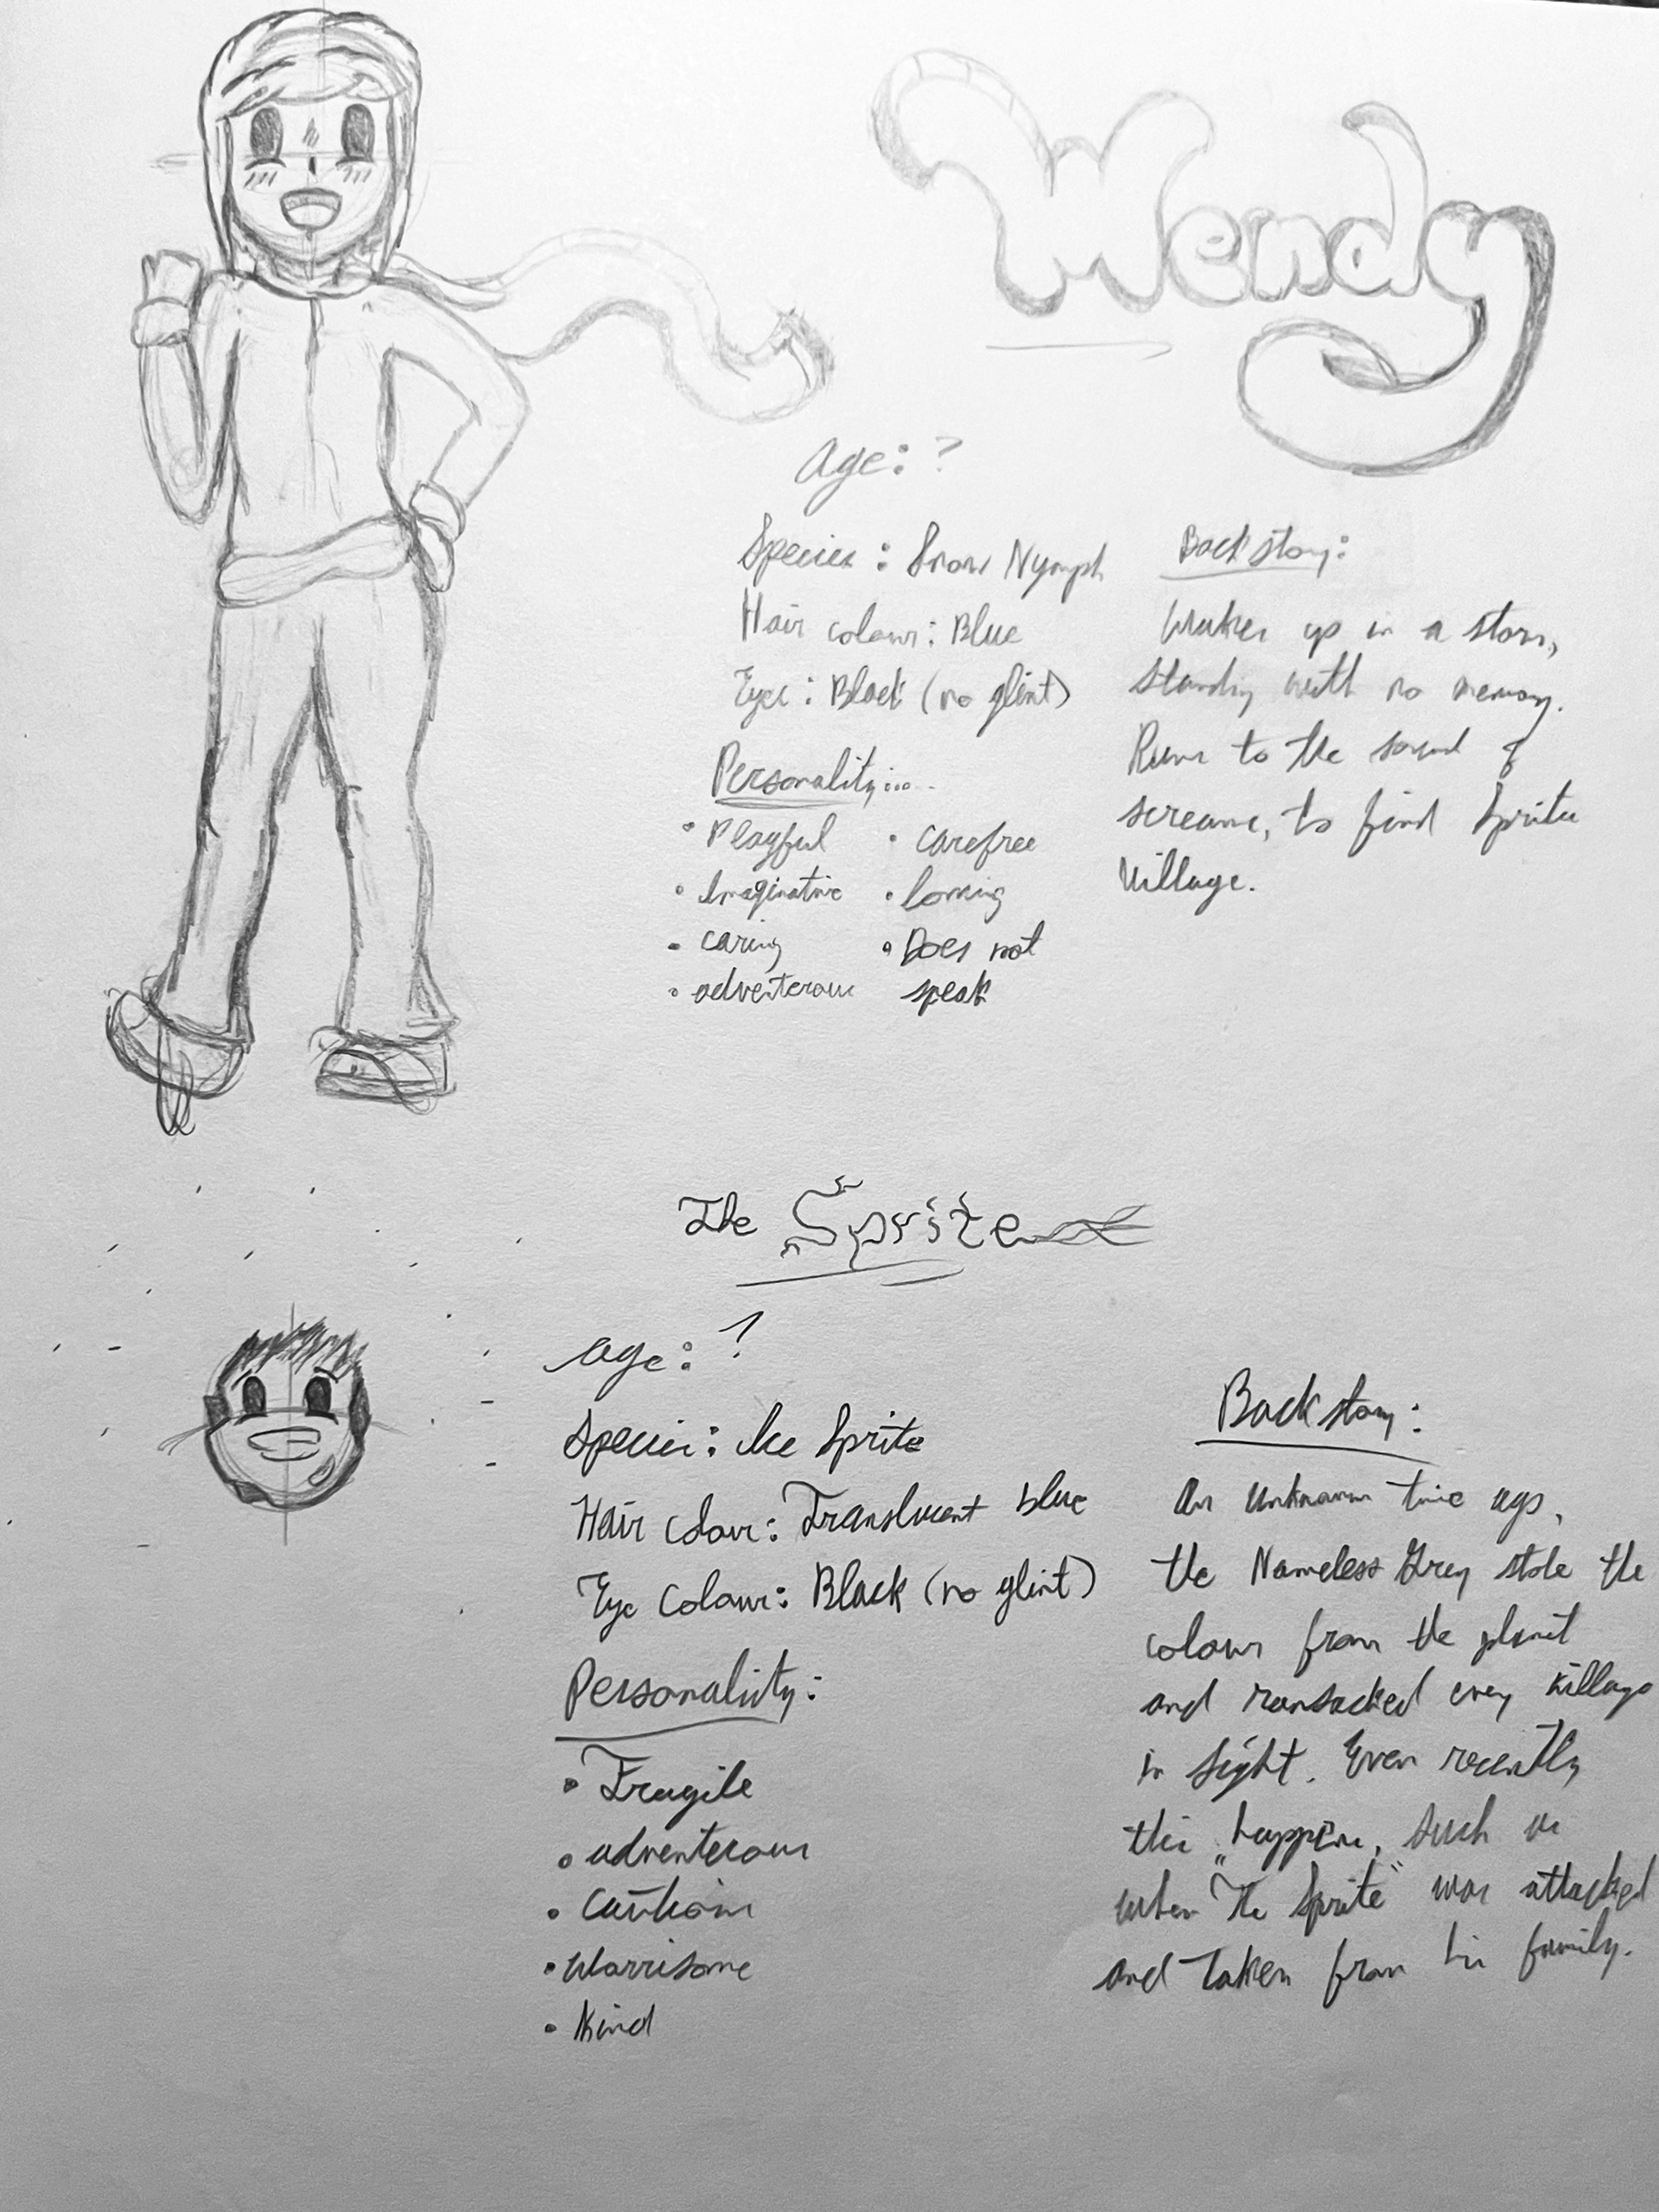 Wendy
Age: ?
Species: Snow Nymph
Hair colour: Blue
Eyes: Black (no glint)
Personality:...
• Playful
• Imaginative
• caring
• adventerous
• carefree
• loving
• Does not
speak
Backstory:
Wakes up in a storm,
standing with no memory.
Runs to the sound of
screams, to find Sprite
Village.
The Sprite
age: ?
Species: Ice Sprite
Hair Colour: Translucent blue
Eye Colour: Black (no glint)
Personality:
• Fragile
• adventerous
• Cautious
• Worrisome
• Kind
Backstory:
An unknown time ago,
the Nameless Grey stole the
colour from the planet
and ransacked every village
in sight. Even recently
this happens, such as
when "The Sprite" was attacked
and taken from his family.